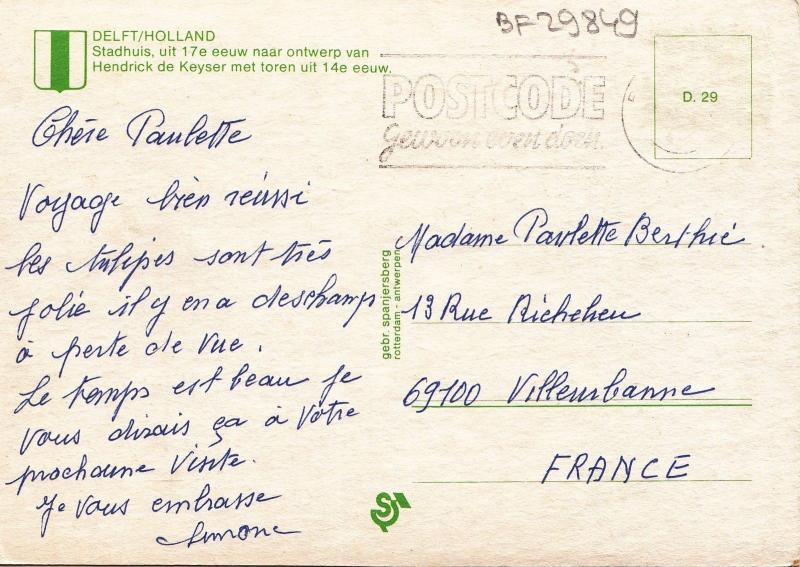 BF29849
DELFT/HOLLAND
Stadhuis, uit 17e eeuw naar ontwerp van
Hendrick de Keyser met toren uit 14e eeuw.
POSTCODE
gewoon even doen.
D. 29
Chère Paulette
Voyage bien réussi
les tulipes sont très
jolie il y en a des champ
à perte de vue.
Le temps est beau je
vous dirais ça à Votre
prochaine Visite.
Je vous embrasse
Simone
gebr. spanjersberg
rotterdam - antwerpen
Madame Paulette Berthié
13 Rue Richelieu
69100 Villeurbanne
FRANCE